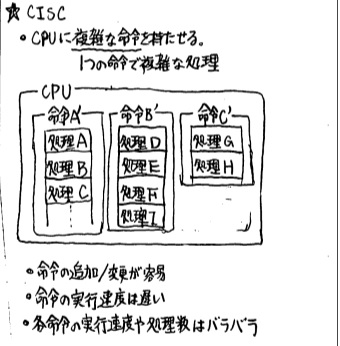 ☆ CISC
・CPUに複雑な命令を持たせる。
1つの命令で複雑な処理
CPU
命令A'
処理A
処理B
処理C
命令B'
処理D
処理E
処理F
処理I
命令C'
処理G
処理H
・命令の追加/変更が容易
・命令の実行速度は遅い
・各命令の実行速度や処理数はバラバラ